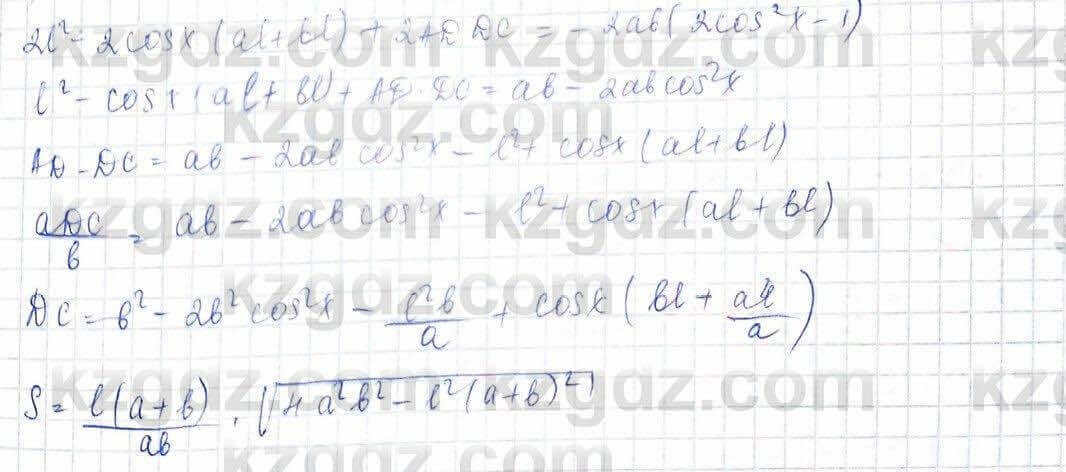 2l² - 2cosx(al+bl) + 2AD DC = -2ab(2cos²x - 1)
l² - cosx(al + bl) + AD·DC = ab - 2abcos²x
AD·DC = ab - 2ab cos²x - l² + cosx(al+bl)
aDC/b = ab - 2abcos²x - l² + cosx(al + bl)
DC = b² - 2b²cos²x - l²b/a + cosx(bl + al/a)
S = l(a+b)/ab · √(4a²b² - l²(a+b)²)
kzgdz.com
kzgdz.com
kzgdz.com
kzgdz.com
kzgdz.com
kzgdz.com